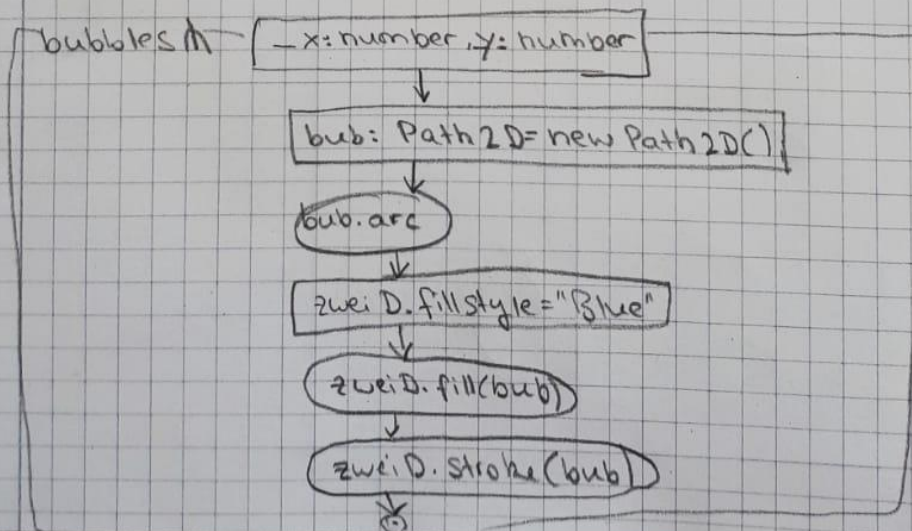 bubbles
_x: number, y: number
bub: Path2D= new Path2D()
bub.arc
zweiD.fillstyle="Blue"
zweiD.fill(bub)
zweiD.stroke(bub)